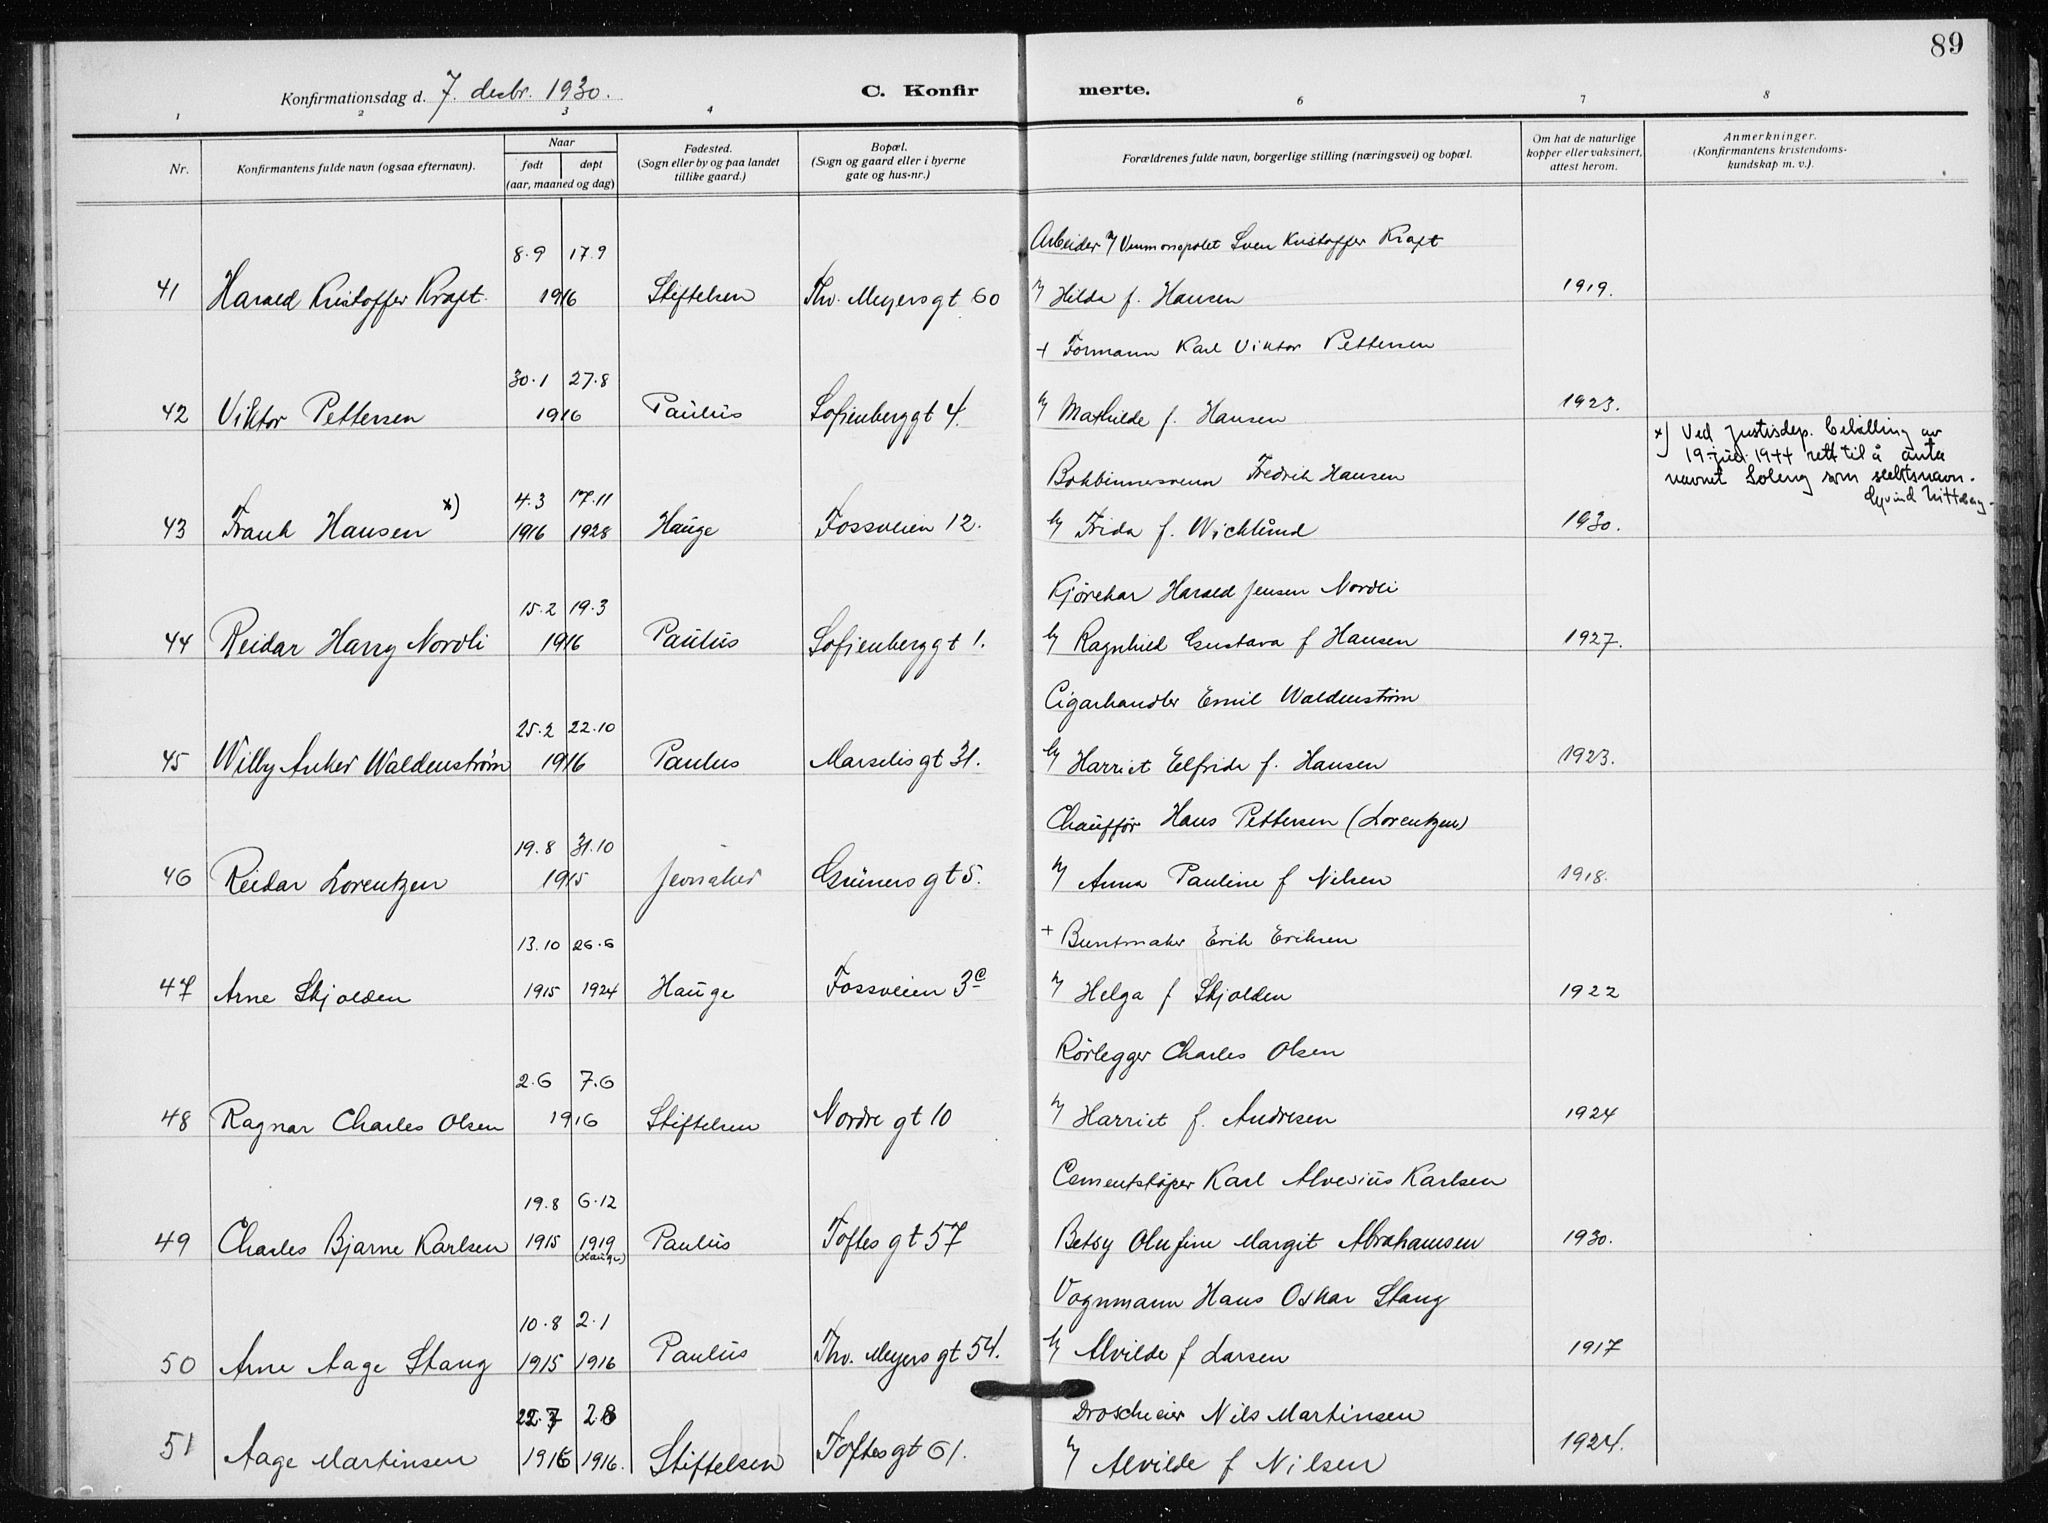 89
Konfirmationsdag d. 7. desbr. 1930.
C. Konfirmerte.
1 2 3 4 6 7 8
Nr.
Konfirmantens fulde navn (ogsaa efternavn).
Naar
født døpt
(aar, maaned og dag)
Fødested.
(Sogn eller by og paa landet
tillike gaard.)
Bopæl.
(Sogn og gaard eller i byerne
gate og hus-nr.)
Forældrenes fulde navn, borgerlige stilling (næringsvei) og bopæl.
Om hat de naturlige
kopper eller vaksinert,
attest herom.
Anmerkninger.
(Konfirmantens kristendoms-
kundskap m. v.).
8.9 17.9 Arbeider v/ Vinmonopolet Sven Kristoffer Kraft
41 Harald Kristoffer Kraft. 1916 Stiftelsen Thv. Meyersgt 60 H/ Hilda f. Hansen 1919.
+ Formann Karl Viktor Pettersen
30.1 27.8
42 Viktor Pettersen 1916 Paulus Sofienberggt 4. H/ Mathilde f. Hansen 1923.
x) Ved Justisdep. bevilling av
19. juli 1944 rett til å anta
navnet Soleng som slektsnavn.
4.3 17.11 Bokbinnersvenn Fredrik Hansen
43 Frank Hansen x) 1916 1928 Hauge Fossveien 12. H/ Frida f. Wicklund 1930.
15.2 19.3 Kjørekar Harald Jensen Nordli
44 Reidar Harry Nordli 1916 Paulus Sofienberggt 1. H/ Ragnhild Gustava f Hansen 1927.
25.2 22.10 Cigarhandler Emil Waldenstrøm
45 Willy Anker Waldenstrøm 1916 Paulus Marselisgt 31. H/ Harriet Elfrida f. Hansen 1923.
19.8 31.10 Chauffør Hans Pettersen (Lorentzen)
46 Reidar Lorentzen 1915 Jevnaker Grüners gt 5. H/ Anna Pauline f Nilsen 1918.
13.10 26.6 + Buntmaker Erik Eriksen
47 Arne Skjolden 1915 1924 Hauge Fossveien 3c H/ Helga f Skjolden 1922
2.6 7.6 Rørlegger Charles Olsen
48 Ragnar Charles Olsen 1916 Stiftelsen Nordre gt 10 H/ Harriet f. Andresen 1924
19.8 6.12 Cementstøper Karl Alvesius Karlsen
49 Charles Bjarne Karlsen 1915 1919 (Hauge) Paulus Toftes gt 57 Betsy Olufine Margit Abrahamsen 1930.
10.8 2.1 Vognmann Hans Oskar Stang
50 Arne Aage Stang 1915 1916 Paulus Thv. Meyers gt 54. H/ Alvilde f Larsen 1917
22.7 2.8 Droscheeier Nils Martinsen
51 Aage Martinsen 1916 1916. Stiftelsen Toftes gt 61. H/ Alvilde f Nilsen 1924.